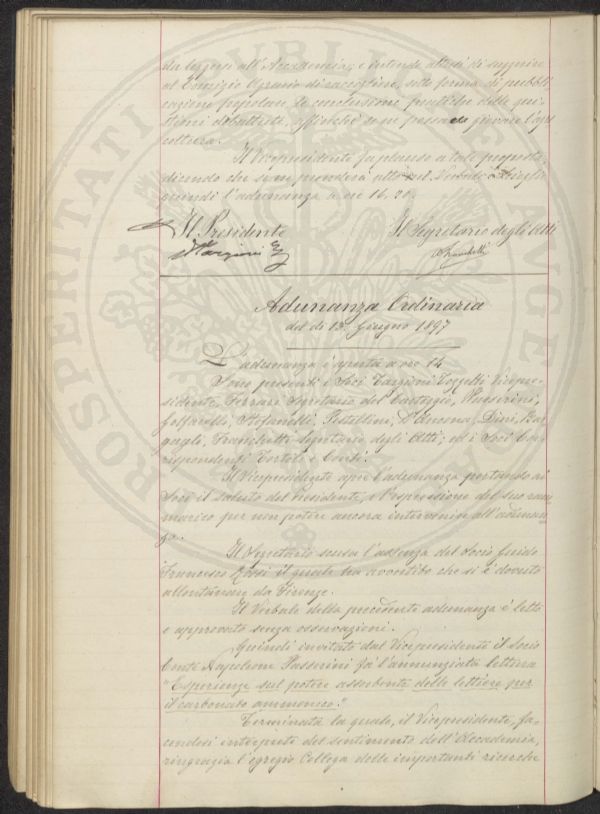 da leggersi all'Accademia, e intende altresì di suggerire
al Comizio Agrario di raccogliere, sotto forma di pubbli
cazione popolare, le conclusioni pratiche delle qui
stioni dibattute, affinché se ne possa giovare l'agri
coltura.
Il Vicepresidente fa plauso a tale proposta,
dicendo che se ne prenderà atto nel Verbale e scioglie
quindi l'adunanza a ore 16.20.
Il Presidente Il Segretario degli Atti
Adunanza Ordinaria
del dì 13 Giugno 1897
L'adunanza è aperta a ore 14
Sono presenti i Soci Targioni Tozzetti Vicepre-
sidente, Ferrari Segretario del Carteggio, Passerini,
Golfarelli, Stefanelli, Pestellini, D'Ancona, Dini, Bar
gagli, Franchetti Segretario degli Atti; ed i Soci Cor
rispondenti Tortoli e
Il Vicepresidente apre l'adunanza portando ai
Soci il saluto del Presidente, e l'espressione del suo ram
marico per non potere ancora intervenire all'adunan
za.
Il Segretario scusa l'assenza del Socio Guido
Francesco il quale ha avvertito che si è dovuto
allontanare da Firenze.
Il Verbale della precedente adunanza è letto
e approvato senza osservazioni.
Quindi invitato dal Vicepresidente il Socio
Conte Napoleone Passerini fa l'annunziata lettura
"Esperienze sul potere assorbente delle lettiere per
il carbonato ammonico."
Terminata la quale, il Vicepresidente, fa-
cendosi interprete del sentimento dell'Accademia,
ringrazia l'egregio Collega delle importanti ricerche
PROSPERITATI PUBLICAE AUGENDAE